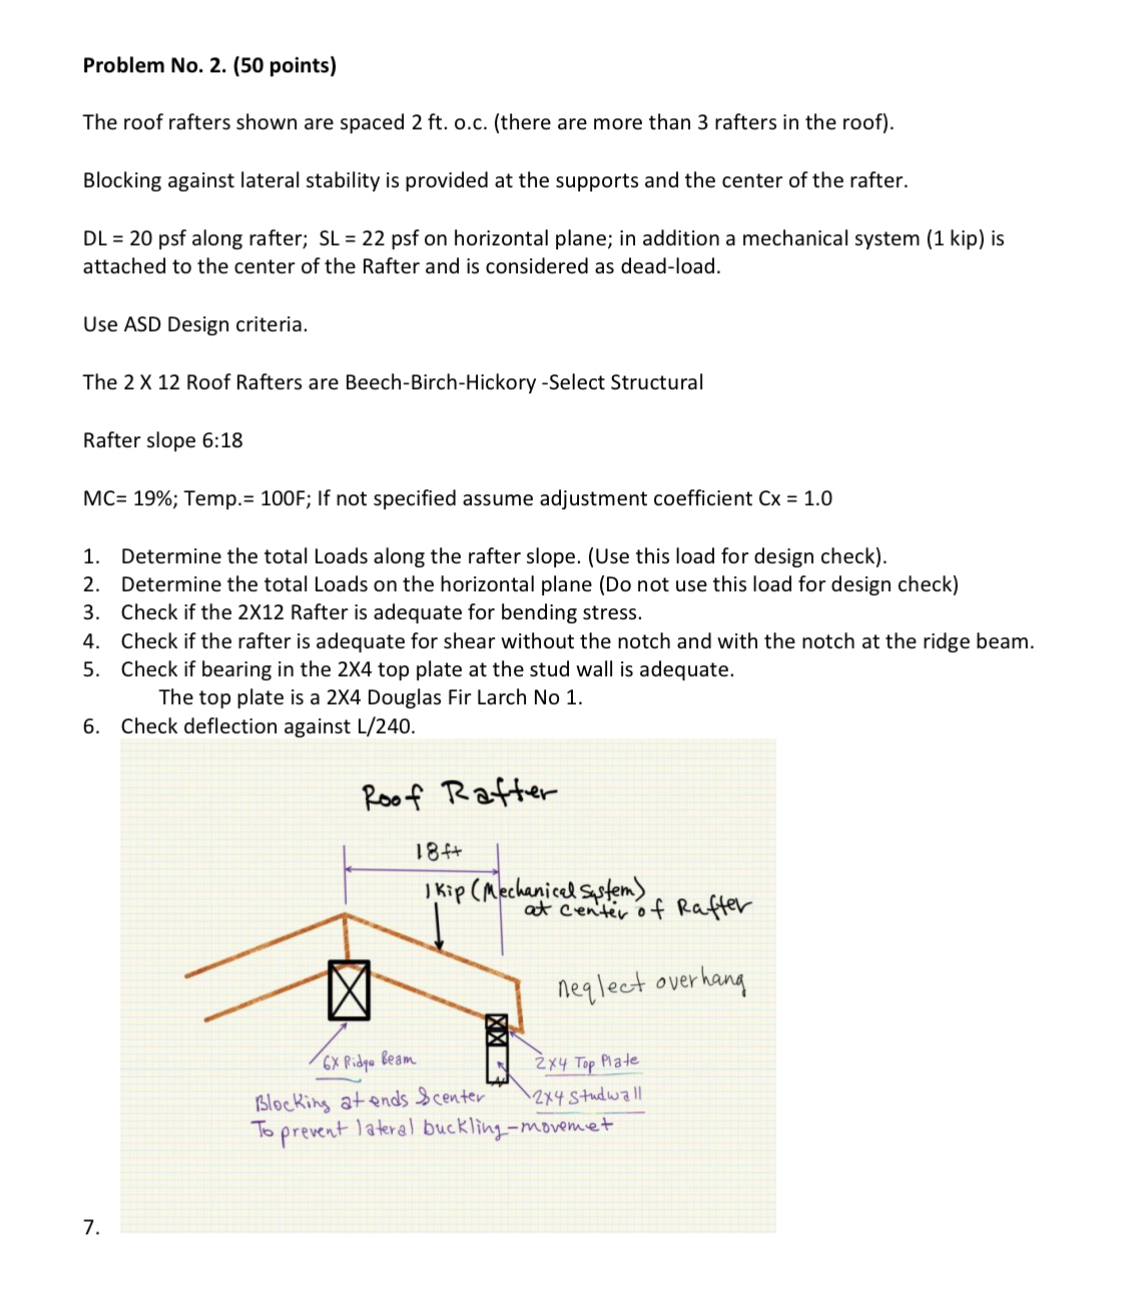 Problem No. 2. (50 points)
The roof rafters shown are spaced 2 ft. o.c. (there are more than 3 rafters in the roof).
Blocking against lateral stability is provided at the supports and the center of the rafter.
DL = 20 psf along rafter;  SL = 22 psf on horizontal plane; in addition a mechanical system (1 kip) is
attached to the center of the Rafter and is considered as dead-load.
Use ASD Design criteria.
The 2 X 12 Roof Rafters are Beech-Birch-Hickory -Select Structural
Rafter slope 6:18
MC= 19%; Temp.= 100F; If not specified assume adjustment coefficient Cx = 1.0
1. Determine the total Loads along the rafter slope. (Use this load for design check).
2. Determine the total Loads on the horizontal plane (Do not use this load for design check)
3. Check if the 2X12 Rafter is adequate for bending stress.
4. Check if the rafter is adequate for shear without the notch and with the notch at the ridge beam.
5. Check if bearing in the 2X4 top plate at the stud wall is adequate.
The top plate is a 2X4 Douglas Fir Larch No 1.
6. Check deflection against L/240.
Roof Rafter
18ft
1 Kip (Mechanical System)
at center of Rafter
neglect overhang
6X Ridge Beam
2x4 Top Plate
Blocking at ends & center
2x4 Studwall
To prevent lateral buckling-movemet
7.